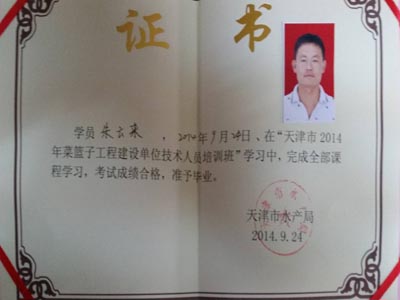 证书
学员 朱云来 ，2014年9月24日、在“天津市2014
年菜篮子工程建设单位技术人员培训班”学习中，完成全部课
程学习，考试成绩合格，准予毕业。
天津市水产局
2014.9.24